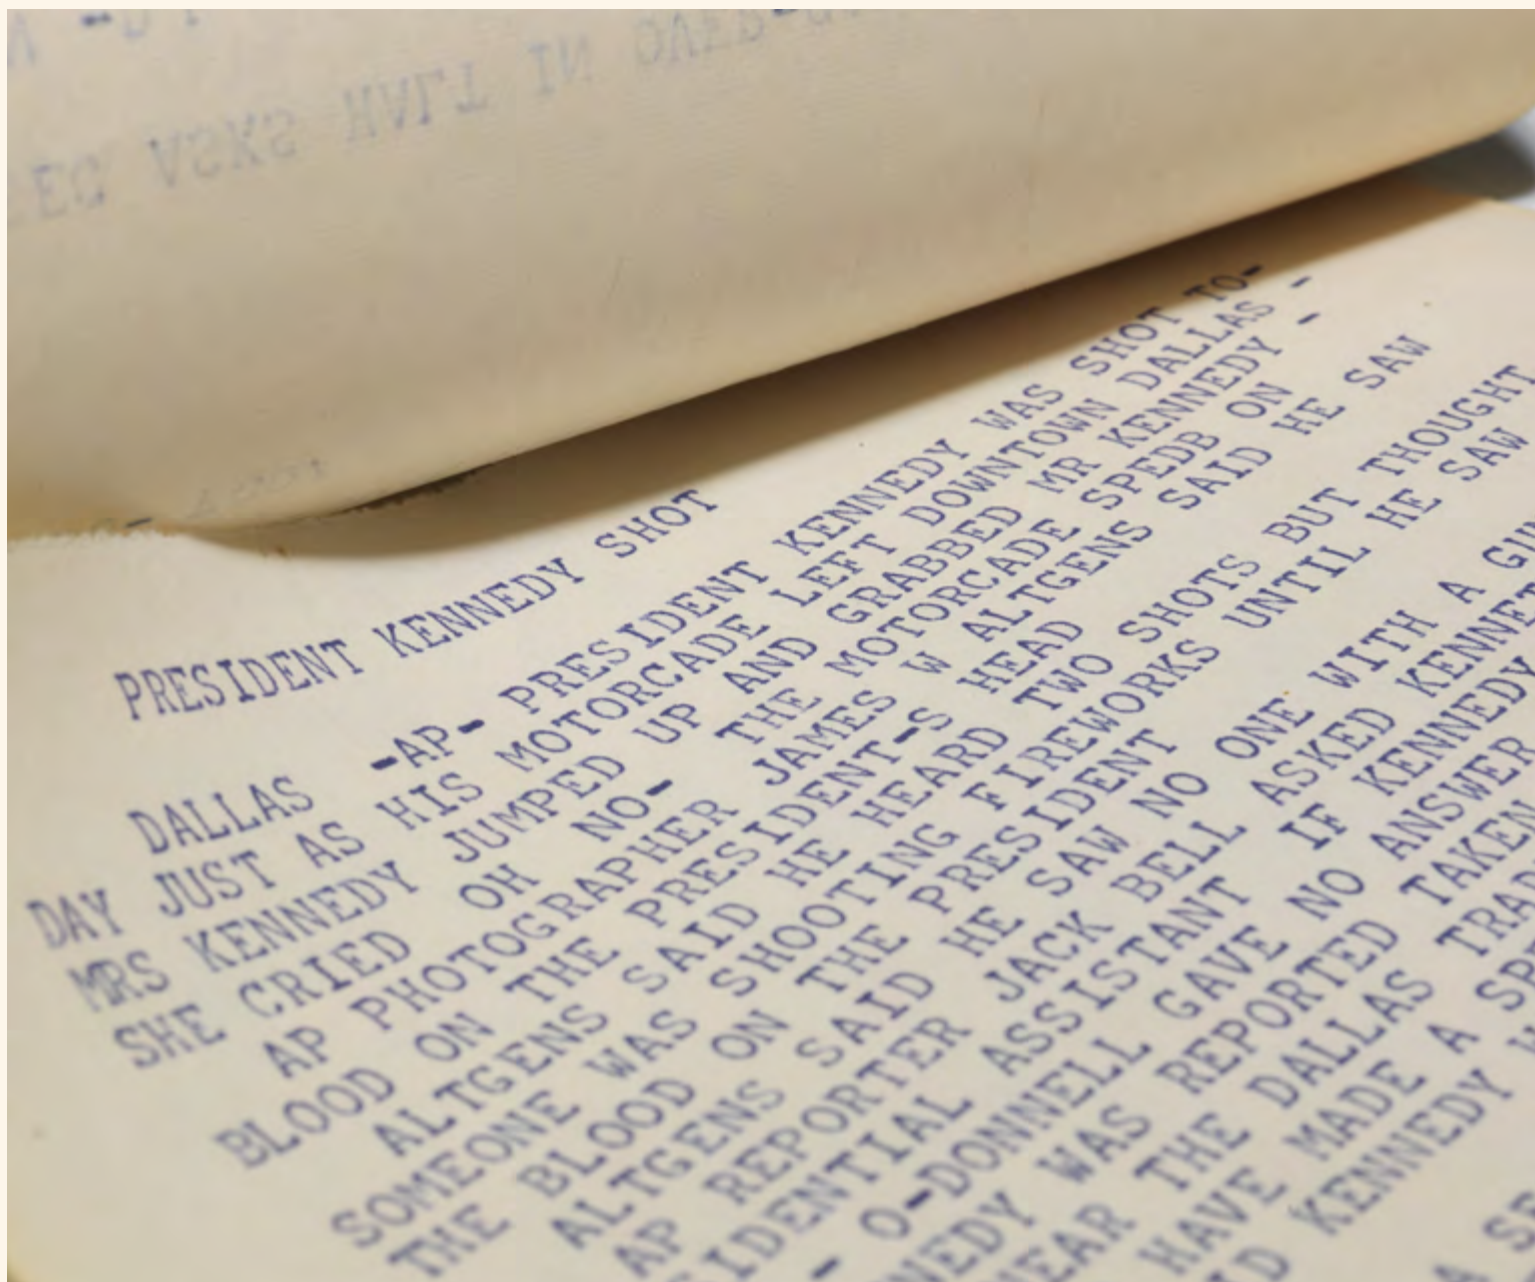 ASKS HALT IN OVER-
PRESIDENT KENNEDY SHOT
DALLAS -AP- PRESIDENT KENNEDY WAS SHOT TO-
DAY JUST AS HIS MOTORCADE LEFT DOWNTOWN DALLAS -
MRS KENNEDY JUMPED UP AND GRABBED MR KENNEDY -
SHE CRIED OH NO- THE MOTORCADE SPEDB ON
AP PHOTOGRAPHER JAMES W ALTGENS SAID HE SAW
BLOOD ON THE PRESIDENT-S HEAD
ALTGENS SAID HE HEARD TWO SHOTS BUT THOUGHT
SOMEONE WAS SHOOTING FIREWORKS UNTIL HE SAW
THE BLOOD ON THE PRESIDENT
ALTGENS SAID HE SAW NO ONE WITH A GU
AP REPORTER JACK BELL ASKED KENNET
IDENTIAL ASSISTANT IF KENNEDY
- O-DONNELL GAVE NO ANSWER
NEDY WAS REPORTED TAKEN
NEAR THE DALLAS TRAD
HAVE MADE A SP
D KENNEDY
A